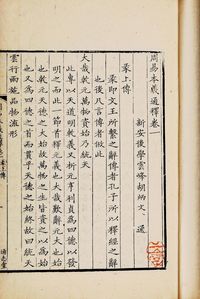 周易本義通釋卷
新安後學雲峰胡炳文 通
彖上傳
彖即文王所繫之辭傳者孔子所以釋經之辭
也後凡言傳者倣此
大哉乾元萬物資始乃統天
此專以天道明乾義又析元亨利貞為四德以發
明之而此一節首釋元義也大哉歎辭元大也始
也乾元天德之大始故萬物之生皆資之以為始
也又為四德之首而貫乎天德之始終故曰統天
雲行雨施品物流形
通志堂